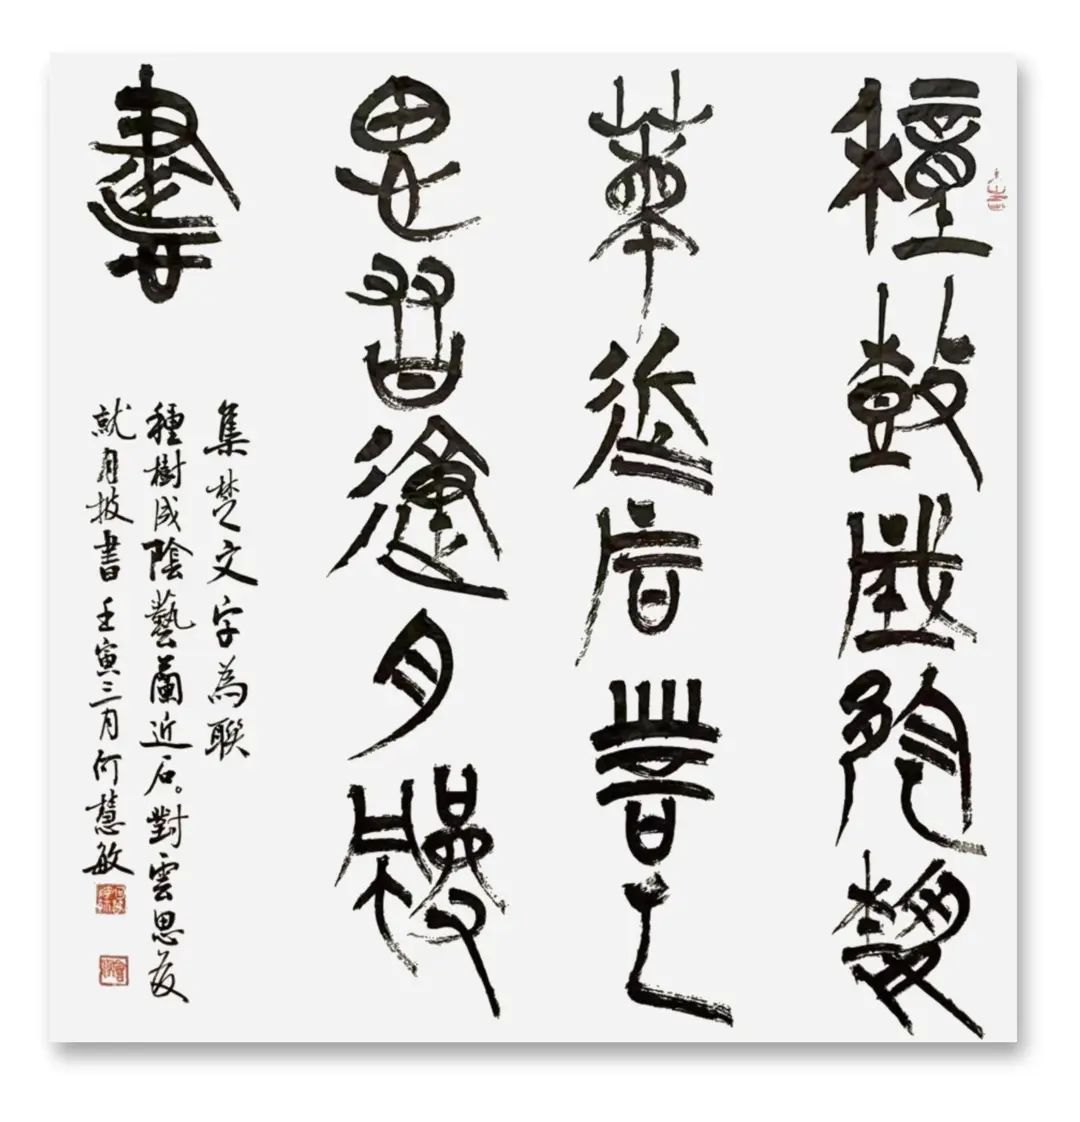 種樹成陰藝
蘭近石對云
思友就月披
書
集楚文字為聯
種樹成陰藝蘭近石。對雲思友
就月披書 壬寅三月何慧敏